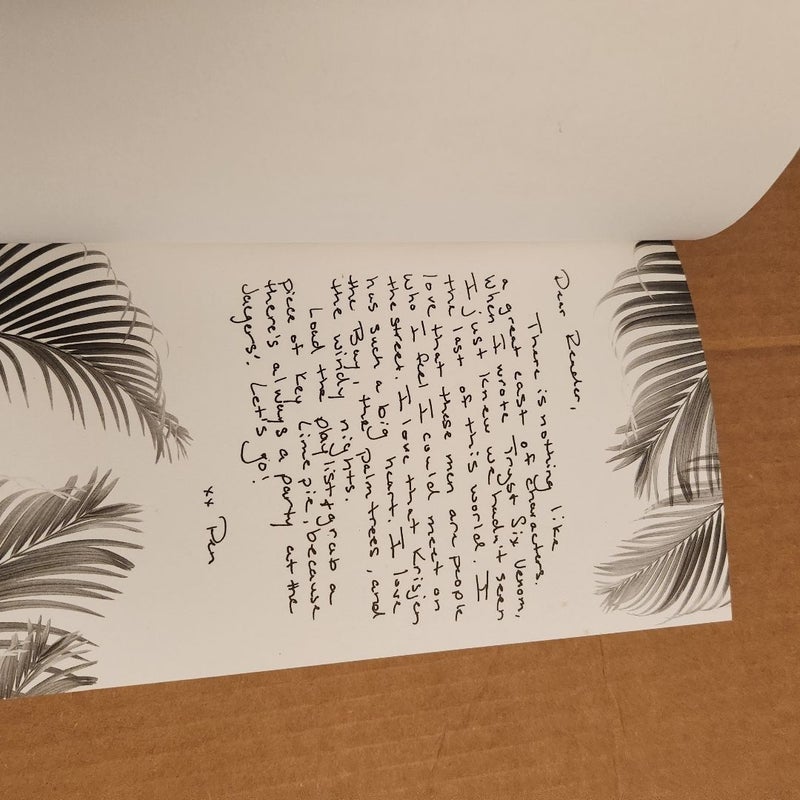 Dear Reader,
There is nothing like
a great cast of characters.
When I wrote Tryst Six Venom,
I just knew we hadn't seen
the last of this world. I
love that these men are people
who I feel I could meet on
the street. I love that Krisjen
has such a big heart. I love
the Bay, the palm trees, and
the windy nights.
Load the playlist + grab a
piece of key lime pie, because
there's always a party at the
Jaegers'. Let's go!
xx Pen